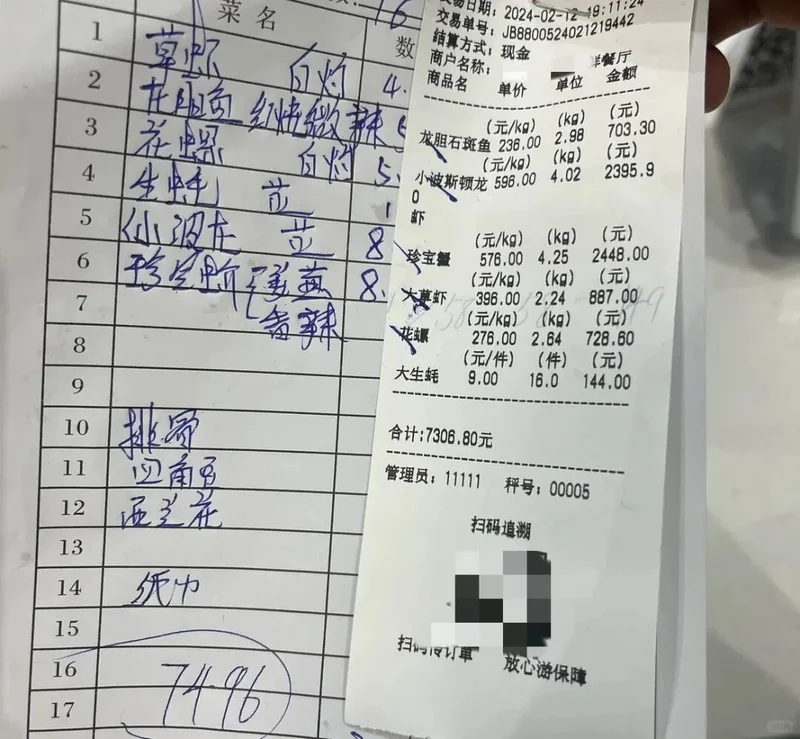 菜名
数
16
1
草虾 白灼 4.
2
龙胆石 红烧微辣 5
3
花螺 白灼 5.
4
生蚝 蒜 1
5
小波龙 蒜 8
6
珍宝蟹 姜葱 8.
7
香辣
8
9
10 排骨
11 四角豆
12 西兰花
13
14 纸巾
15
16
7496
17
交易日期: 2024-02-12 19:11:24
交易单号: JB8800524021219442
结算方式: 现金
商户名称: 洋餐厅
商品名 单价 单位 金额
(元/kg) (kg) (元)
龙胆石斑鱼 236.00 2.98 703.30
(元/kg) (kg) (元)
小波斯顿龙 596.00 4.02 2395.9
0
虾
(元/kg) (kg) (元)
珍宝蟹 576.00 4.25 2448.00
(元/kg) (kg) (元)
大草虾 396.00 2.24 887.00
(元/kg) (kg) (元)
花螺 276.00 2.64 728.60
(元/件) (件) (元)
大生蚝 9.00 16.0 144.00
合计:7306.80元
管理员: 11111 秤号: 00005
扫码追溯
扫码传订单 放心游保障